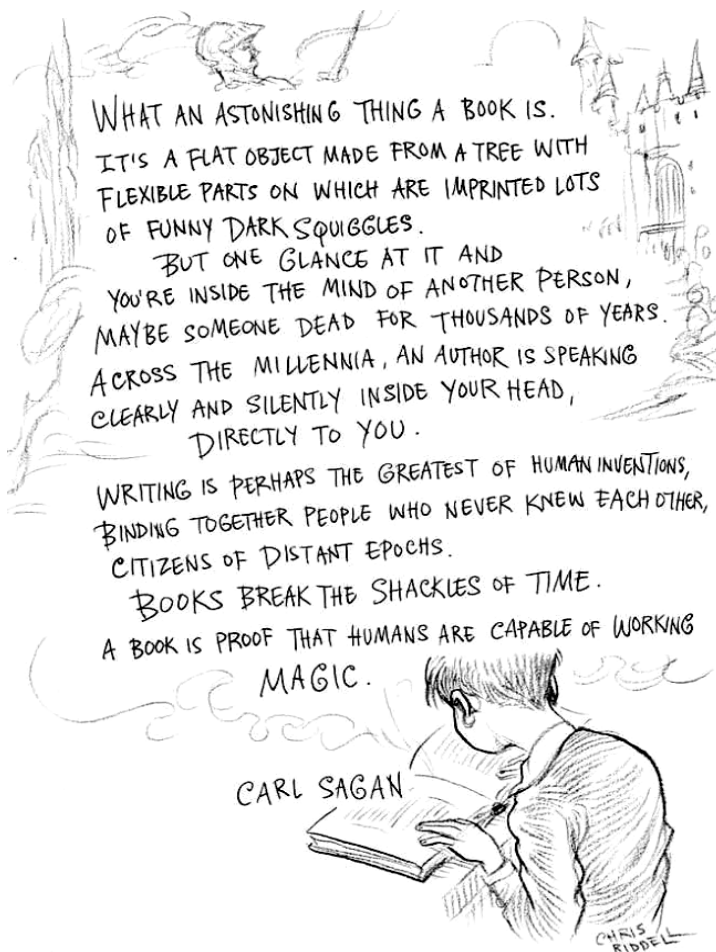 WHAT AN ASTONISHING THING A BOOK IS.
IT'S A FLAT OBJECT MADE FROM A TREE WITH
FLEXIBLE PARTS ON WHICH ARE IMPRINTED LOTS
OF FUNNY DARK SQUIGGLES.
BUT ONE GLANCE AT IT AND
YOU'RE INSIDE THE MIND OF ANOTHER PERSON,
MAYBE SOMEONE DEAD FOR THOUSANDS OF YEARS.
ACROSS THE MILLENNIA, AN AUTHOR IS SPEAKING
CLEARLY AND SILENTLY INSIDE YOUR HEAD,
DIRECTLY TO YOU.
WRITING IS PERHAPS THE GREATEST OF HUMAN INVENTIONS,
BINDING TOGETHER PEOPLE WHO NEVER KNEW EACH OTHER,
CITIZENS OF DISTANT EPOCHS.
BOOKS BREAK THE SHACKLES OF TIME.
A BOOK IS PROOF THAT HUMANS ARE CAPABLE OF WORKING
MAGIC.
CARL SAGAN
CHRIS
RIDDELL